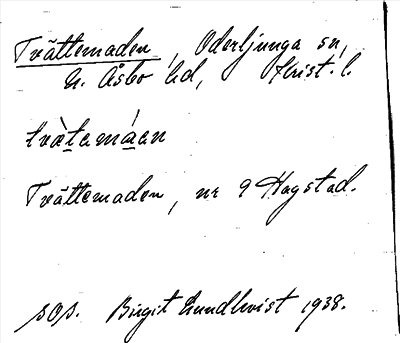 Tvättemaden, Oderljunga sn,
N. Åsbo hd, Krist. l.
tvæ̀temáen
Tvättemaden, nr 9 Hagstad.
sos. Birgit Lundkvist 1938.